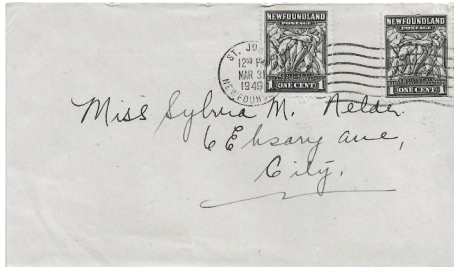 NEWFOUNDLAND
POSTAGE
1 ONE CENT 1
NEWFOUNDLAND
POSTAGE
1 ONE CENT 1
ST. JO
12 PM
MAR 31
1949
NEWFOUN
Miss Sylvia M.
6 Ebsary ave,
City.